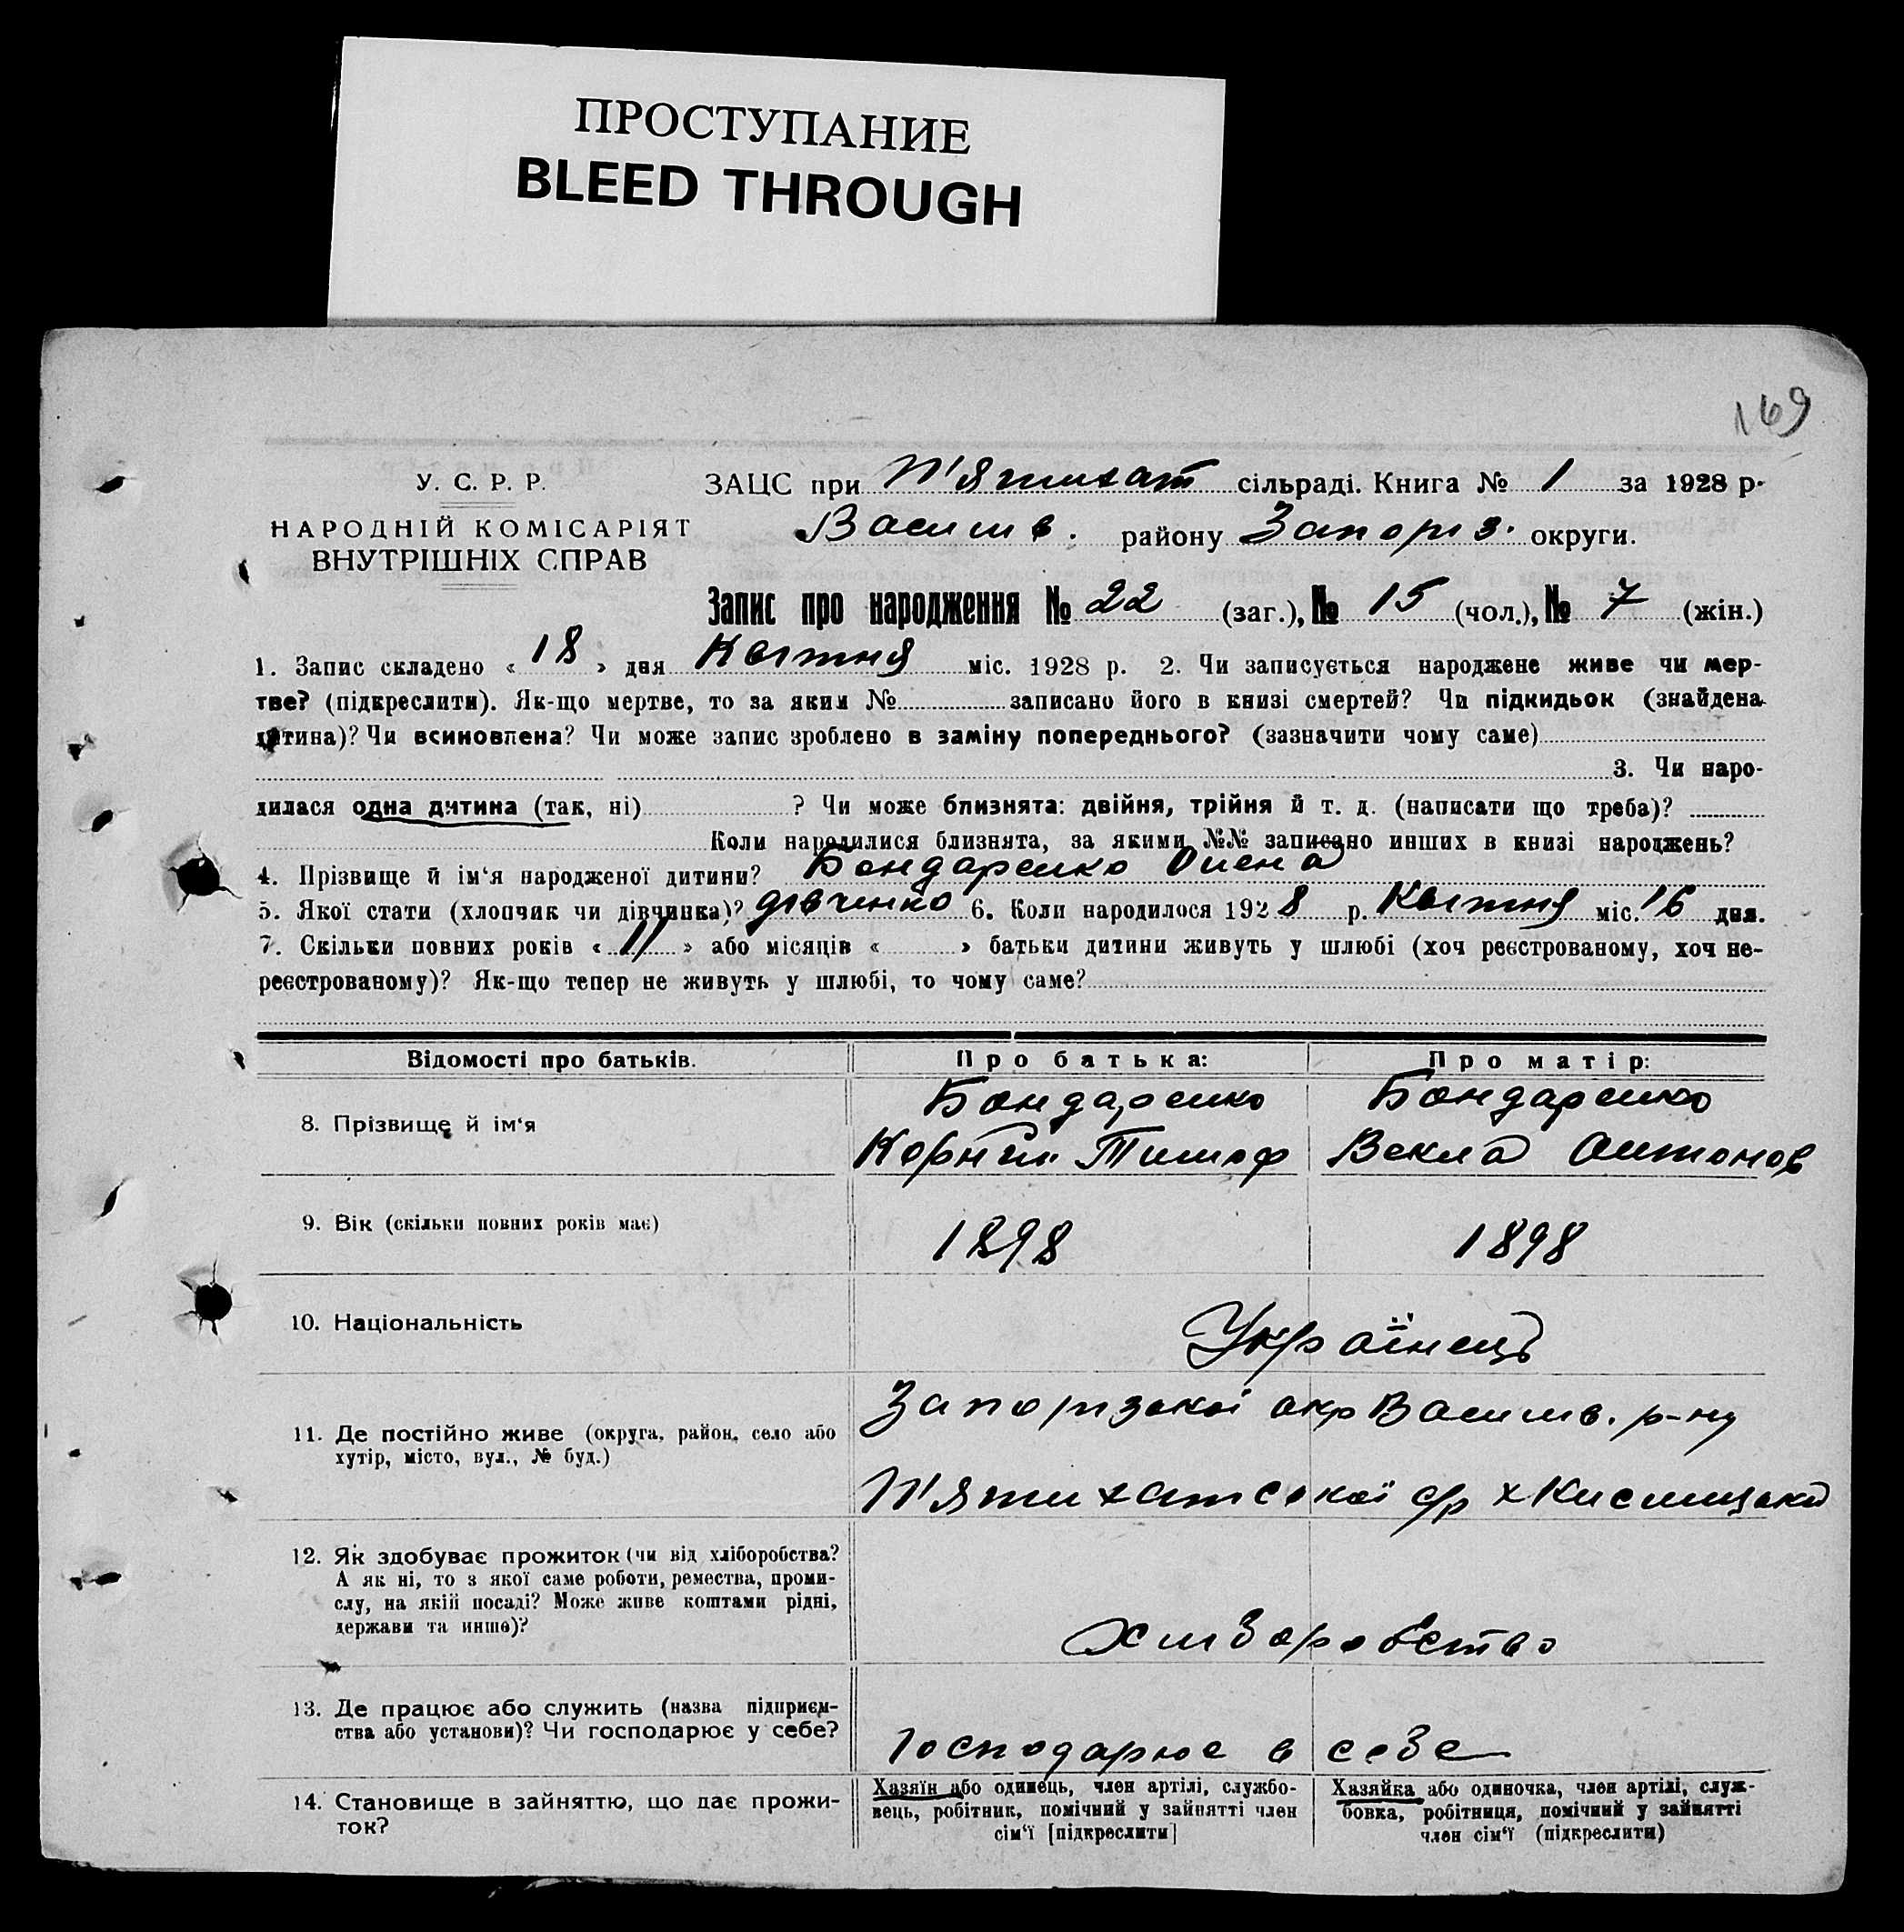 ПРОСТУПАНИЕ
BLEED THROUGH
169
У. С. Р. Р.
НАРОДНІЙ КОМІСАРІЯТ
ВНУТРІШНІХ СПРАВ
ЗАЦС при П'ятихат сільраді. Книга № 1 за 1928 р.
Василів. району Запоріз. округи.
Запис про народження № 22 (заг.), № 15 (чол.), № 7 (жін.)
1. Запис складено « 18 » дня Квітня міс. 1928 р. 2. Чи записується народжене живе чи мер-
тве? (підкреслити). Як-що мертве, то за яким № записано його в книзі смертей? Чи підкидьок (знайдена
дитина)? Чи всиновлена? Чи може запис зроблено в заміну попереднього? (зазначити чому саме)
3. Чи наро-
дилася одна дитина (так, ні) ? Чи може близнята: двійня, трійня й т. д. (написати що треба)?
Коли народилися близнята, за якими №№ записано инших в книзі народжень?
4. Прізвище й ім‘я народженої дитини? Бондаренко Олена
5. Якої стати (хлопчик чи дівчинка)? дівченко 6. Коли народилося 1928 р. Квітня міс. 16 дня.
7. Скільки повних років « 11 » або місяців « » батьки дитини живуть у шлюбі (хоч реєстрованому, хоч не-
реєстрованому)? Як-що тепер не живуть у шлюбі, то чому саме?
Відомості про батьків. Про батька: Про матір:
8. Прізвище й ім‘я
Бондаренко
Корній Тимоф
Бондаренко
Векла Антонов
9. Вік (скільки повних років має) 1898 1898
10. Національність Українець
11. Де постійно живе (округа, район, село або
хутір, місто, вул., № буд.)
Запорізької окр Василів. р-ну
П'ятихатської с/р х
12. Як здобуває прожиток (чи від хліборобства?
А як ні, то з якої саме роботи, ремества, проми-
слу, на якій посаді? Може живе коштами рідні,
держави та инше)?
Хліборобство
13. Де працює або служить (назва підприєм-
ства або установи)? Чи господарює у себе?
Господарює в себе
14. Становище в зайняттю, що дає прожи-
ток?
Хазяїн або одинець, член артілі, службо-
вець, робітник, помічний у зайнятті член
сім‘ї [підкреслити]
Хазяйка або одиночка, член артілі, служ-
бовка, робітниця, помічний у зайнятті
член сім‘ї (підкреслити)